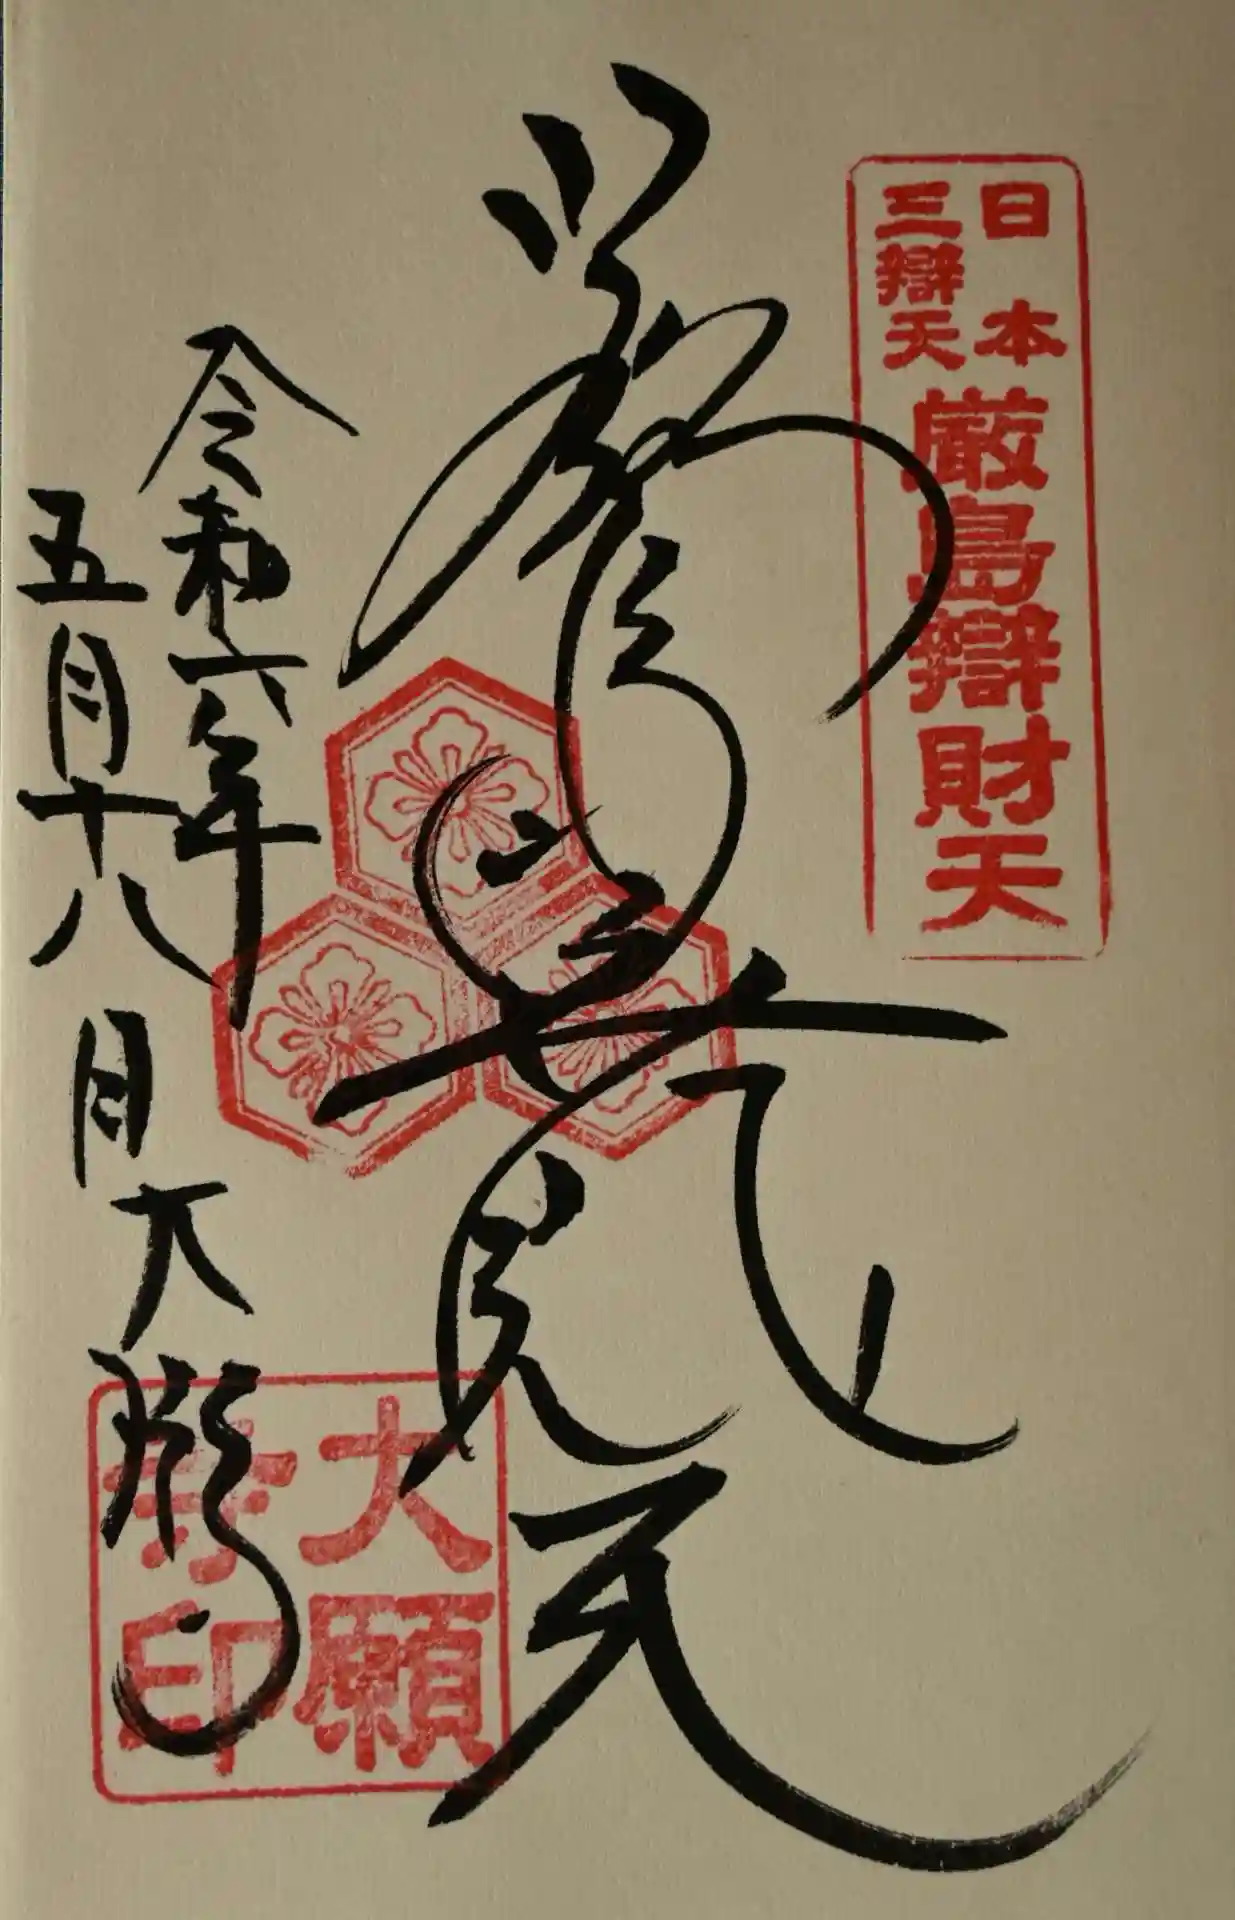 日本
三辯天
厳島辯財天
天
令和六年
五月十八日
大願寺
大願
寺印